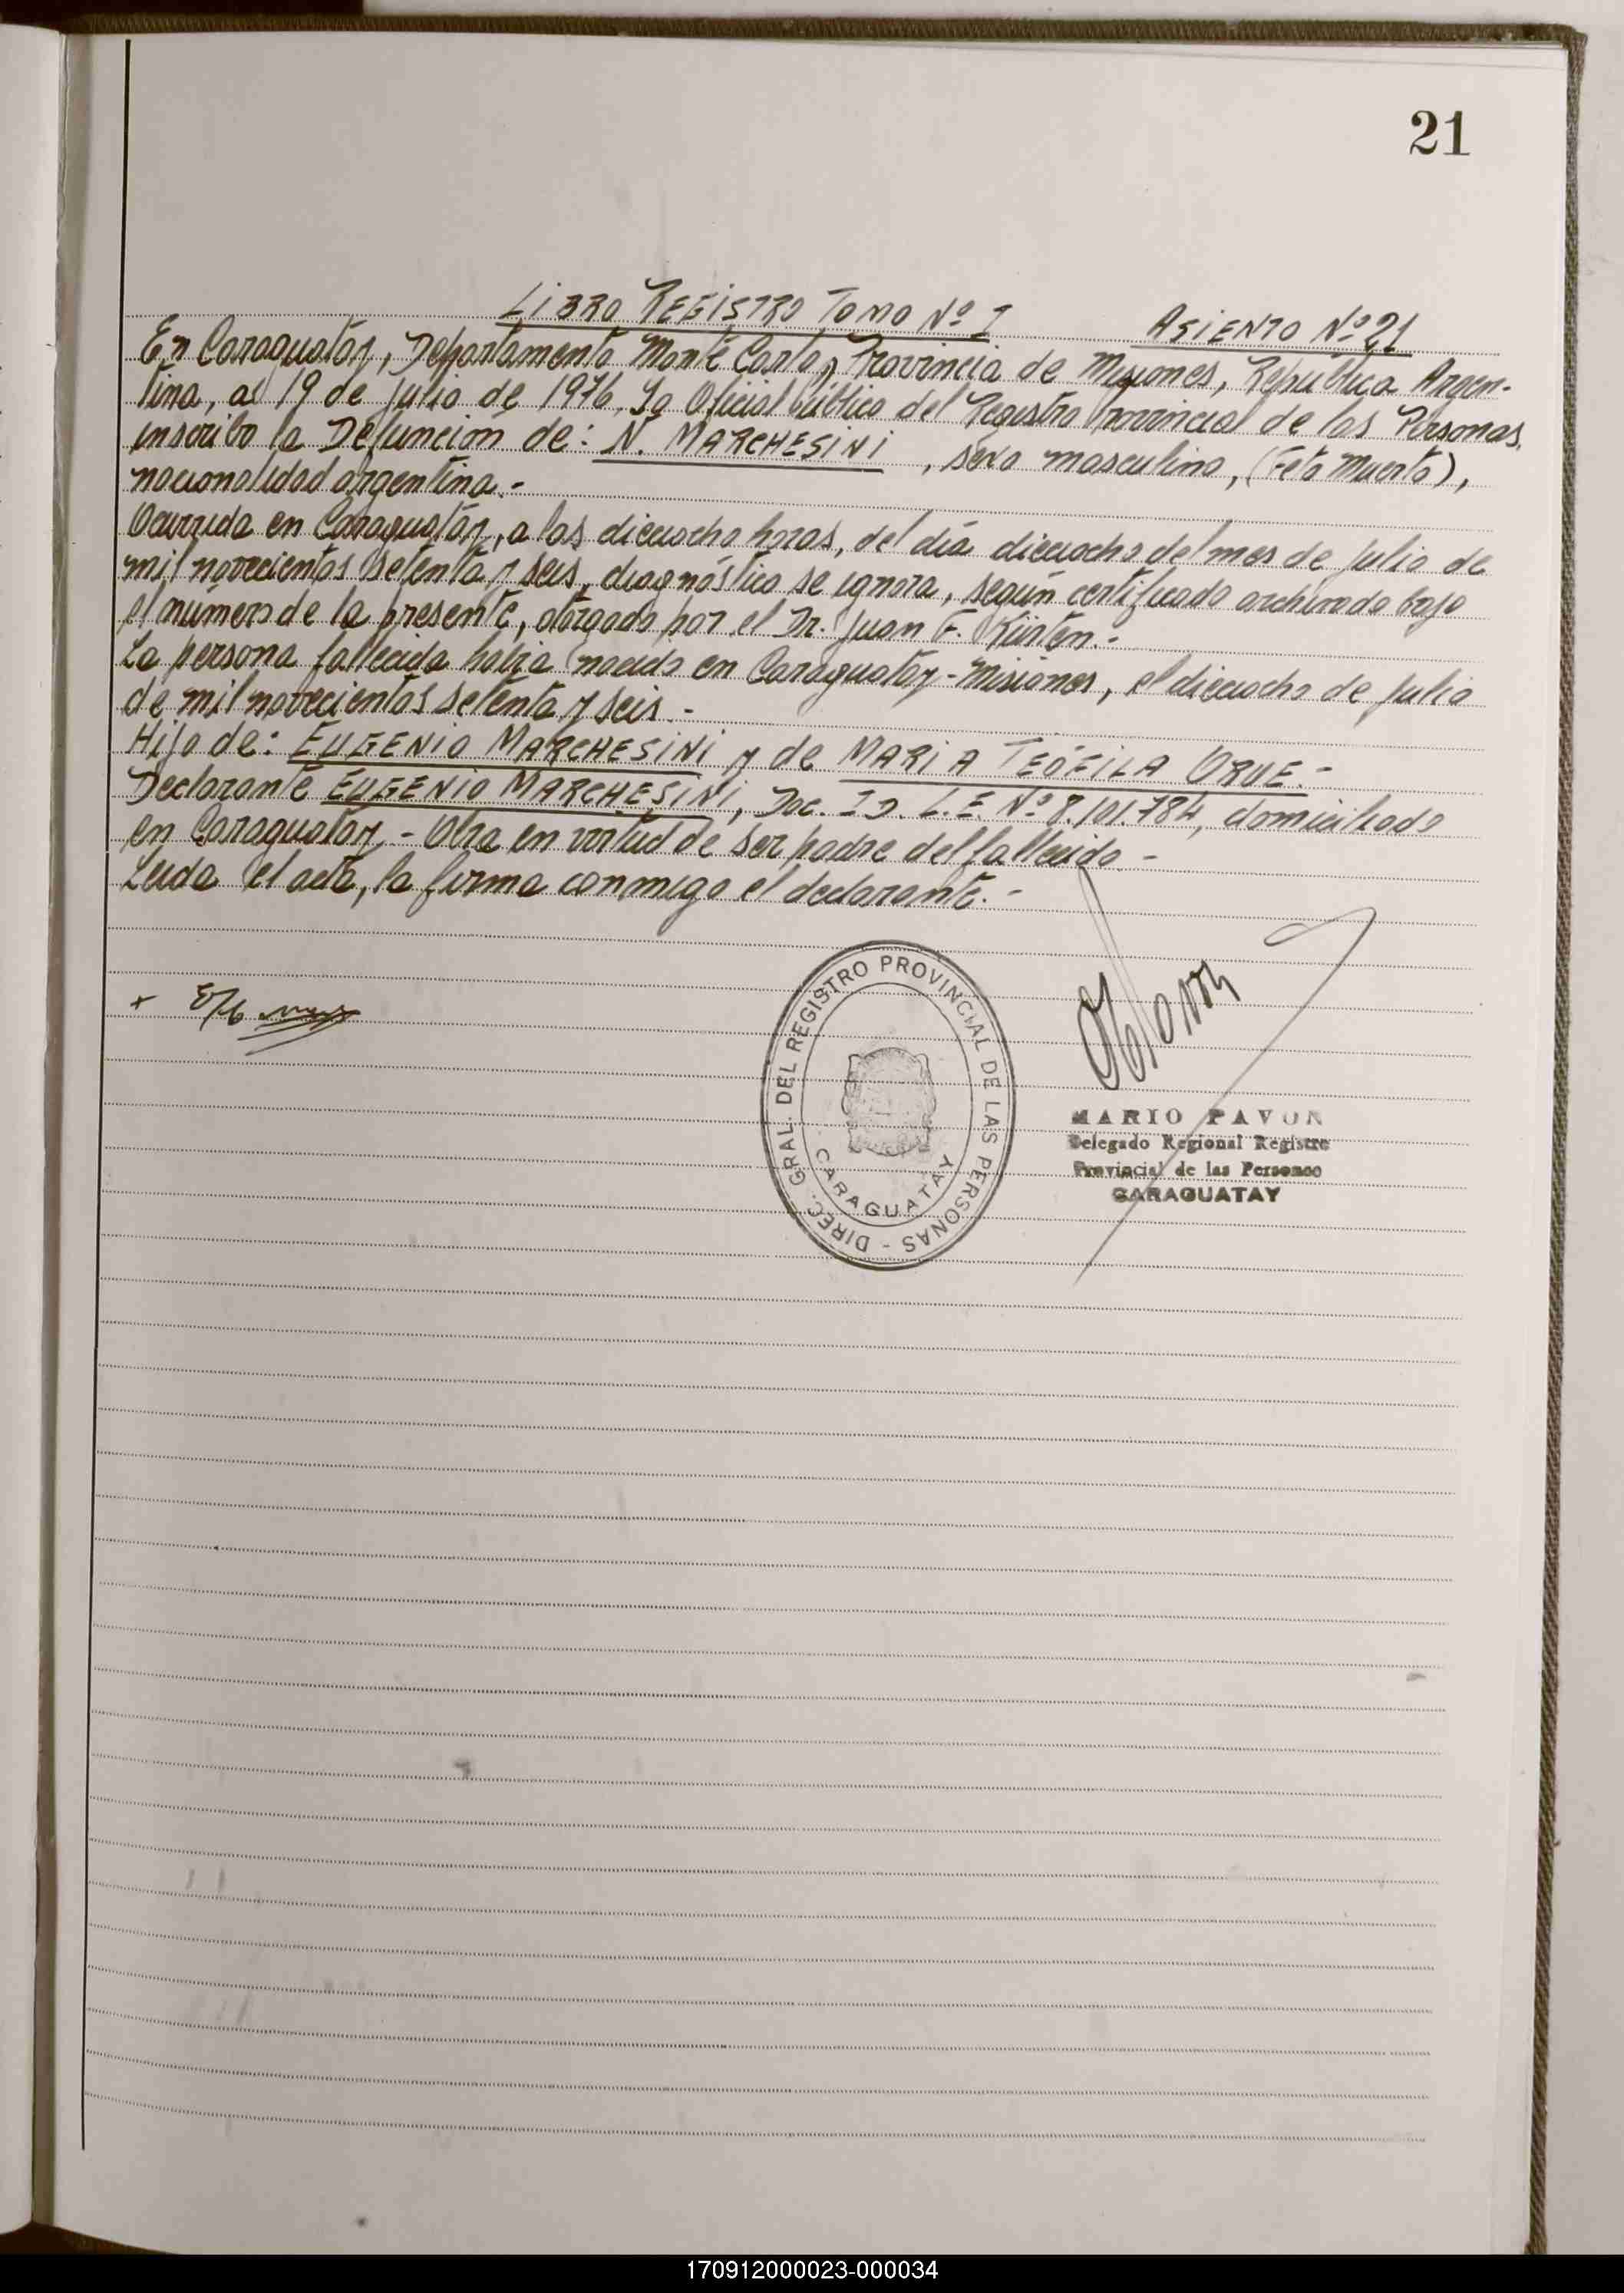 21
LIBRO REGISTRO TOMO Nº I ASIENTO Nº 21
En Caraguatay, Departamento Monte Carlo, Provincia de Misiones, República Argen-
tina, a 19 de julio de 1976, Yo Oficial Público del Registro Provincial de las Personas,
inscribo la Defunción de: N. MARCHESINI, sexo masculino, (Feto Muerto),
nacionalidad argentina.-
Ocurrida en Caraguatay, a las dieciocho horas, del día dieciocho del mes de julio de
mil novecientos setenta y seis, diagnóstico se ignora, según certificado archivado bajo
el número de la presente, otorgado por el Dr. Juan F. Kirsten.-
La persona fallecida había nacido en Caraguatay-Misiones, el dieciocho de julio
de mil novecientos setenta y seis.-
Hijo de: EUGENIO MARCHESINI y de MARIA TEÓFILA ORUE.-
Declarante EUGENIO MARCHESINI, Doc. ID. L.E. Nº 8.101.784, domiciliado
en Caraguatay.- Obra en virtud de ser padre del fallecido.-
Leida el acta, la firma conmigo el declarante.-
DIREC. GRAL. DEL REGISTRO PROVINCIAL DE LAS PERSONAS -
CARAGUATAY
MARIO PAVON
Delegado Regional Registro
Provincial de las Personas
CARAGUATAY
170912000023-000034